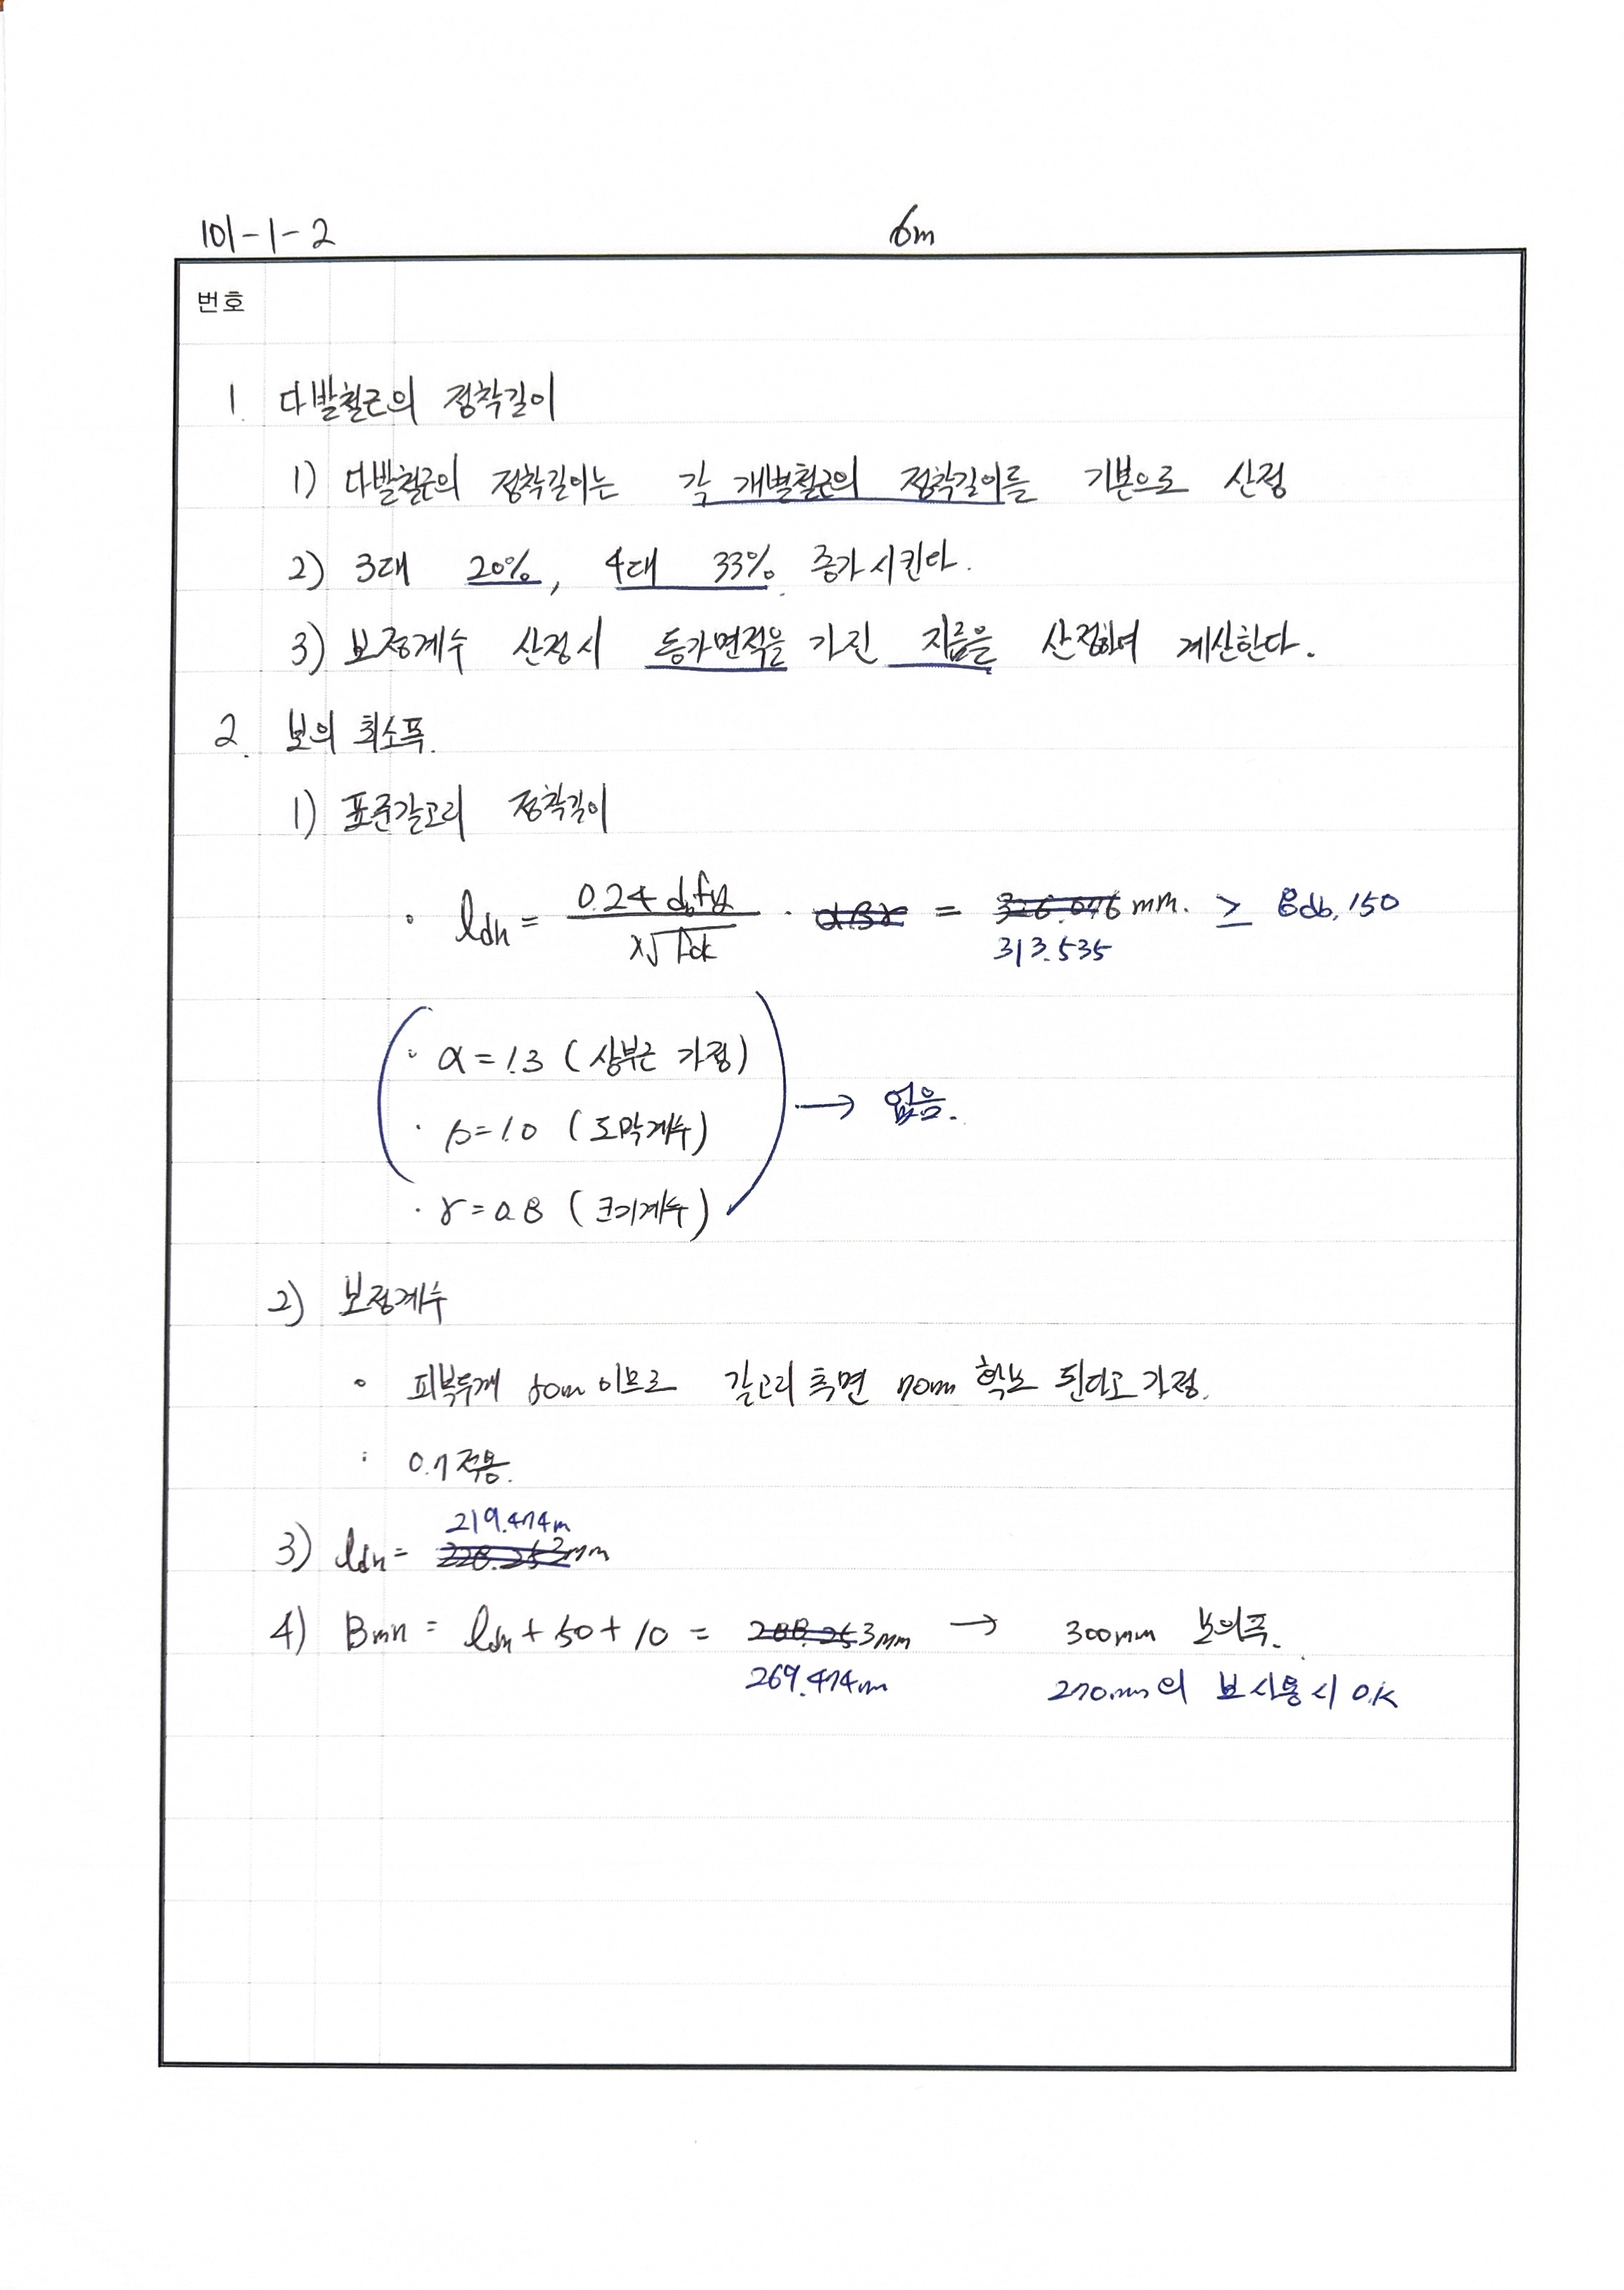 101-1-2
6m
번호
1. 다발철근의 정착길이
1) 다발철근의 정착길이는 각 개별철근의 정착길이를 기본으로 산정
2) 3대 20%, 4대 33% 증가시킨다.
3) 보정계수 산정시 등가면적을 가진 지름을 산정하여 계산한다.
2. 보의 최소폭.
1) 표준갈고리 정착길이
· ldh = 0.24 db fy / λ√fck · αβγ = mm. ≥ 8db, 150
313.535
· α = 1.3 (상부근 가정)
· β = 1.0 (도막계수) → 없음.
· γ = 0.8 (크기계수)
2) 보정계수
· 피복두께 50mm 이므로 갈고리 측면 70mm 확보 된다고 가정.
: 0.7 적용.
219.474m
3) ldh = 228.253mm
4) Bmin = ldh + 50 + 10 = 288.253mm → 300mm 보의폭.
269.474m 270mm의 보 사용시 O.K